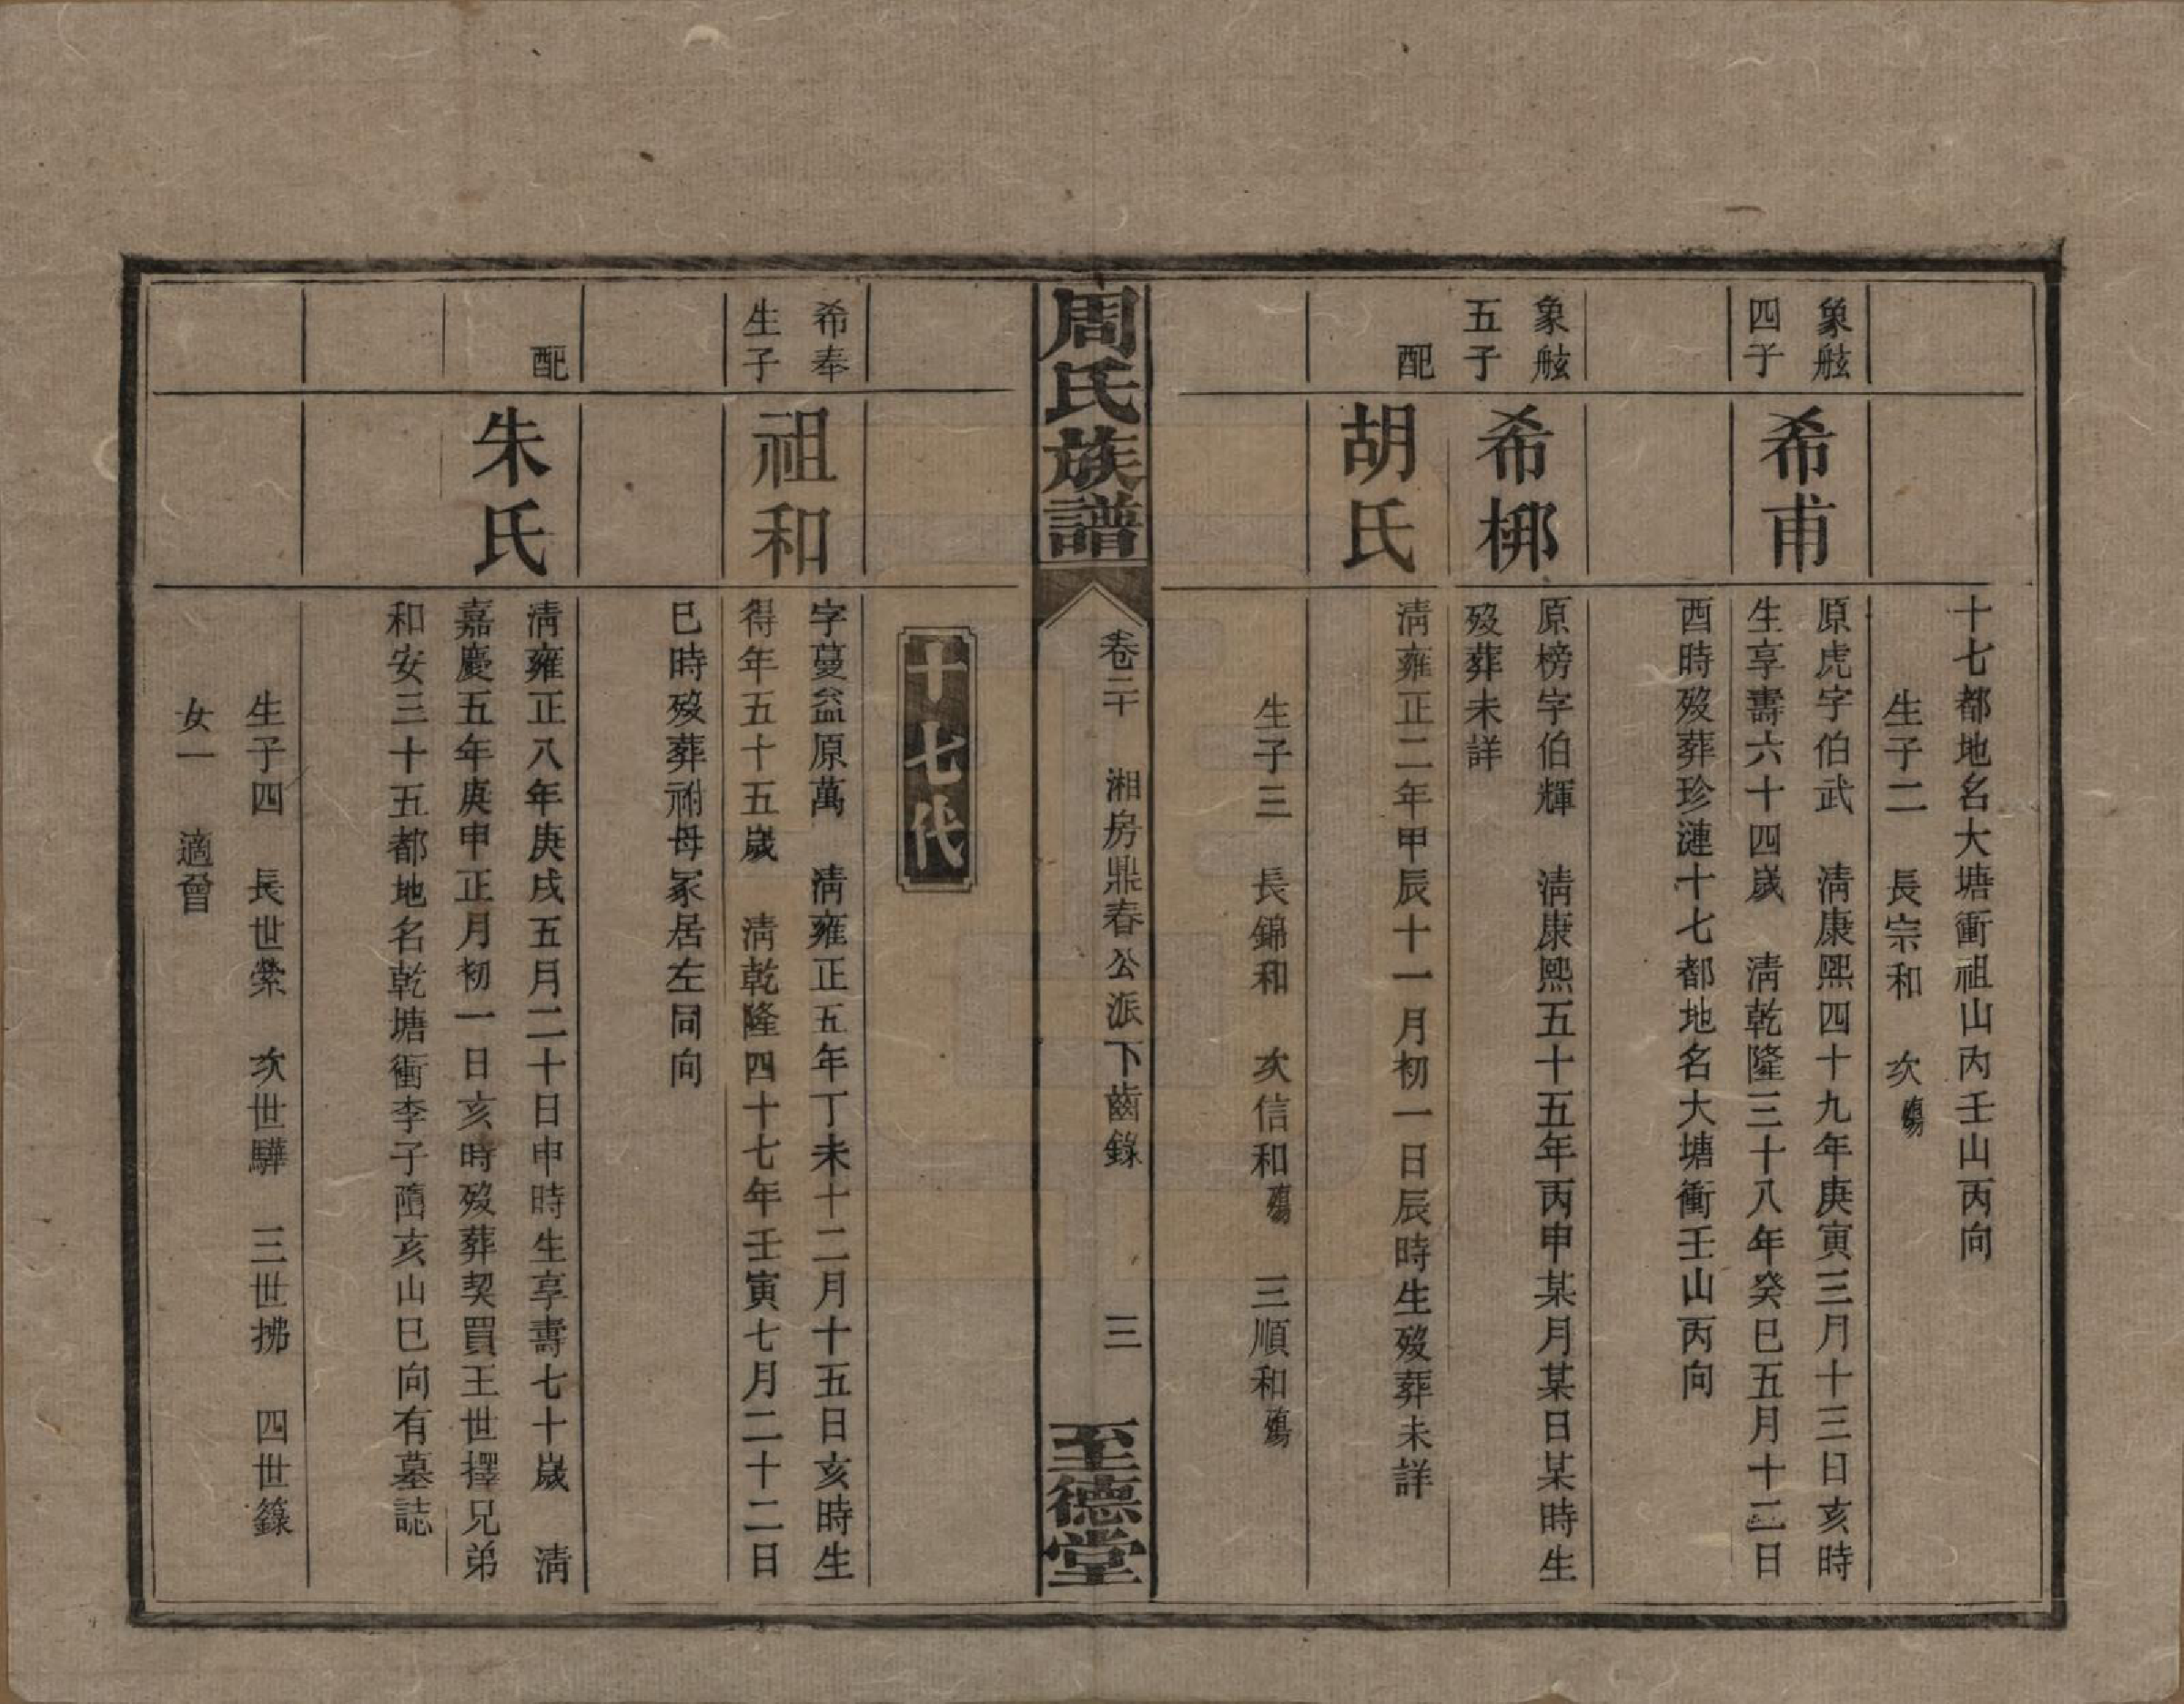 十七都地名大塘衝祖山內壬山丙向
生子二　長宗和　次殤
象舷四子
希甫
原虎字伯武　清康熙四十九年庚寅三月十三日亥時
生享壽六十四歲　清乾隆三十八年癸巳五月十二日
酉時歿葬珍漣十七都地名大塘衝壬山丙向
象舷五子
希梆
原榜字伯輝　清康熙五十五年丙申某月某日某時生
歿葬未詳
配
胡氏
清雍正二年甲辰十一月初一日辰時生歿葬未詳
生子三　長錦和　次信和殤　三順和殤
周氏族譜
卷二十　湘房鼎春公派下齒錄　三
至德堂
十七代
希奉生子
祖和
字蔓益原萬　清雍正五年丁未十二月十五日亥時生
得年五十五歲　清乾隆四十七年壬寅七月二十二日
巳時歿葬祔母冢居左同向
配
朱氏
清雍正八年庚戌五月二十日申時生享壽七十歲　清
嘉慶五年庚申正月初一日亥時歿葬契買王世擇兄弟
和安三十五都地名乾塘衝李子𡐓亥山巳向有墓誌
生子四　長世縈　次世驊　三世拂　四世籙
女一　適曾